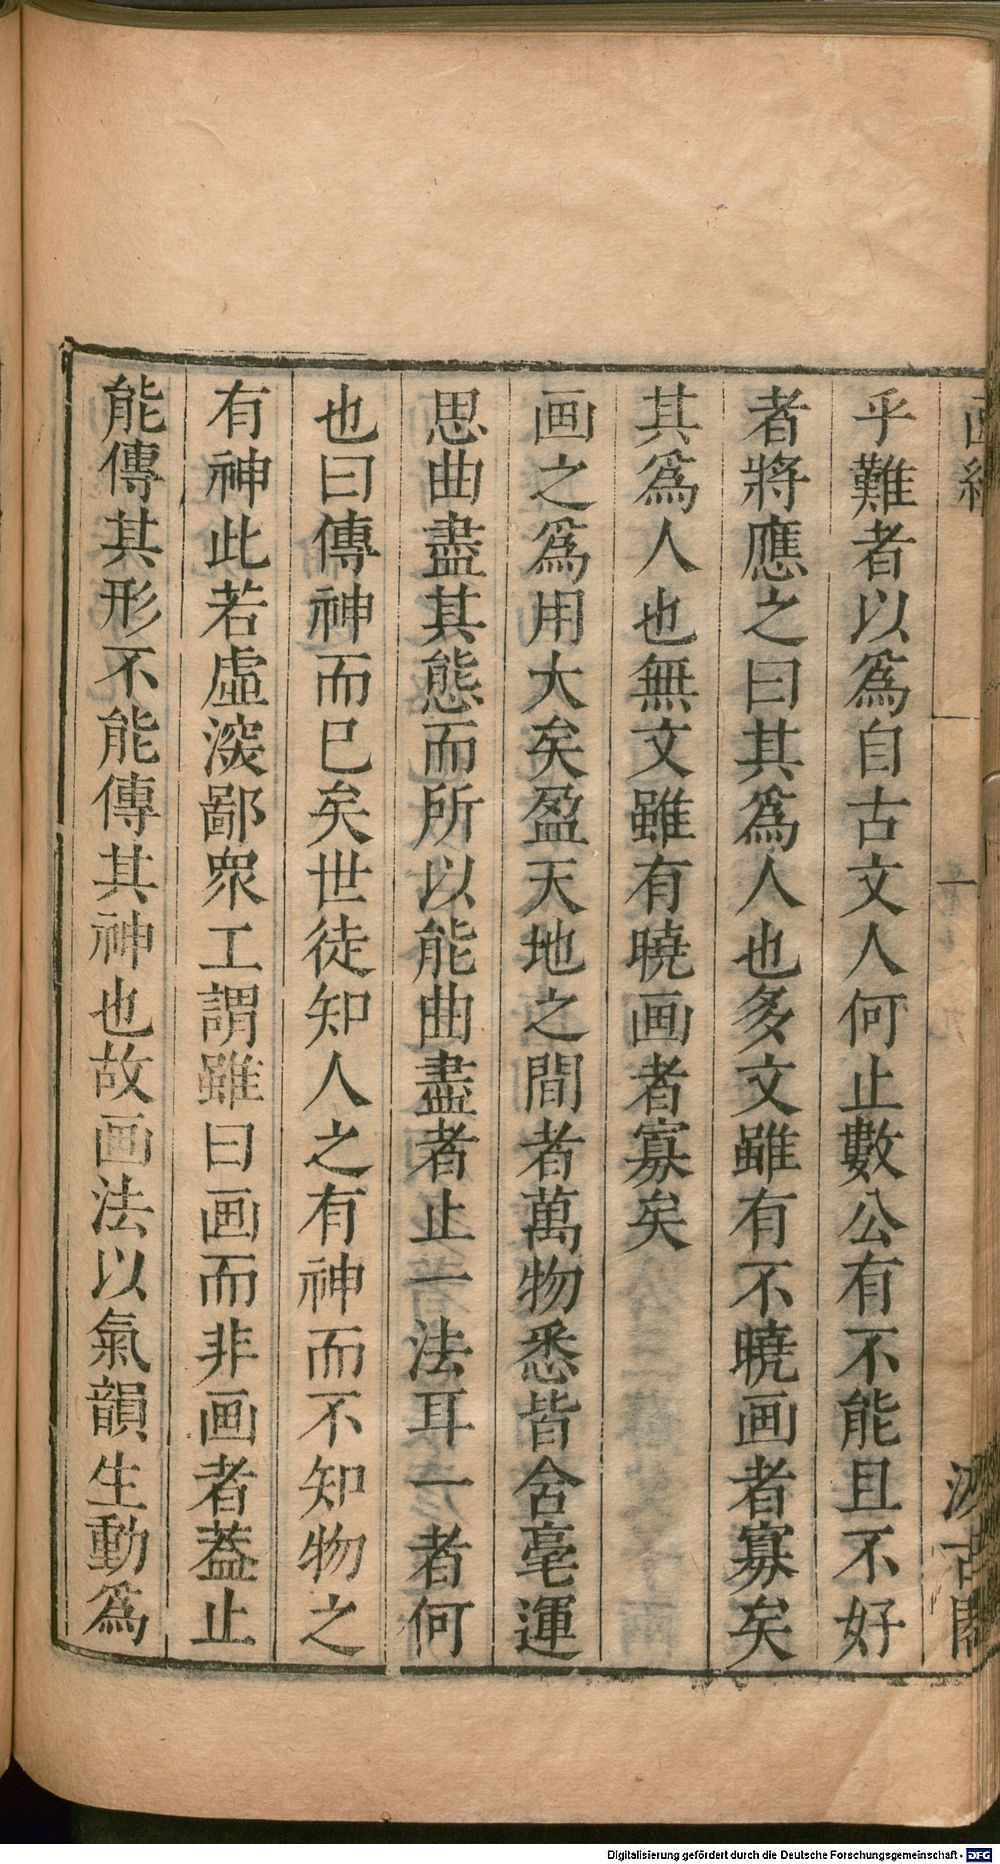 乎難者以爲自古文人何止數公有不能且不好
者將應之曰其爲人也多文雖有不曉画者寡矣
其爲人也無文雖有曉画者寡矣
画之爲用大矣盈天地之間者萬物悉皆含毫運
思曲盡其態而所以能曲盡者止一法耳一者何
也曰傳神而已矣世徒知人之有神而不知物之
有神此若虛深鄙衆工謂雖曰画而非画者葢止
能傳其形不能傳其神也故画法以氣韻生動爲
Digitalisierung gefördert durch die Deutsche Forschungsgemeinschaft - DFG